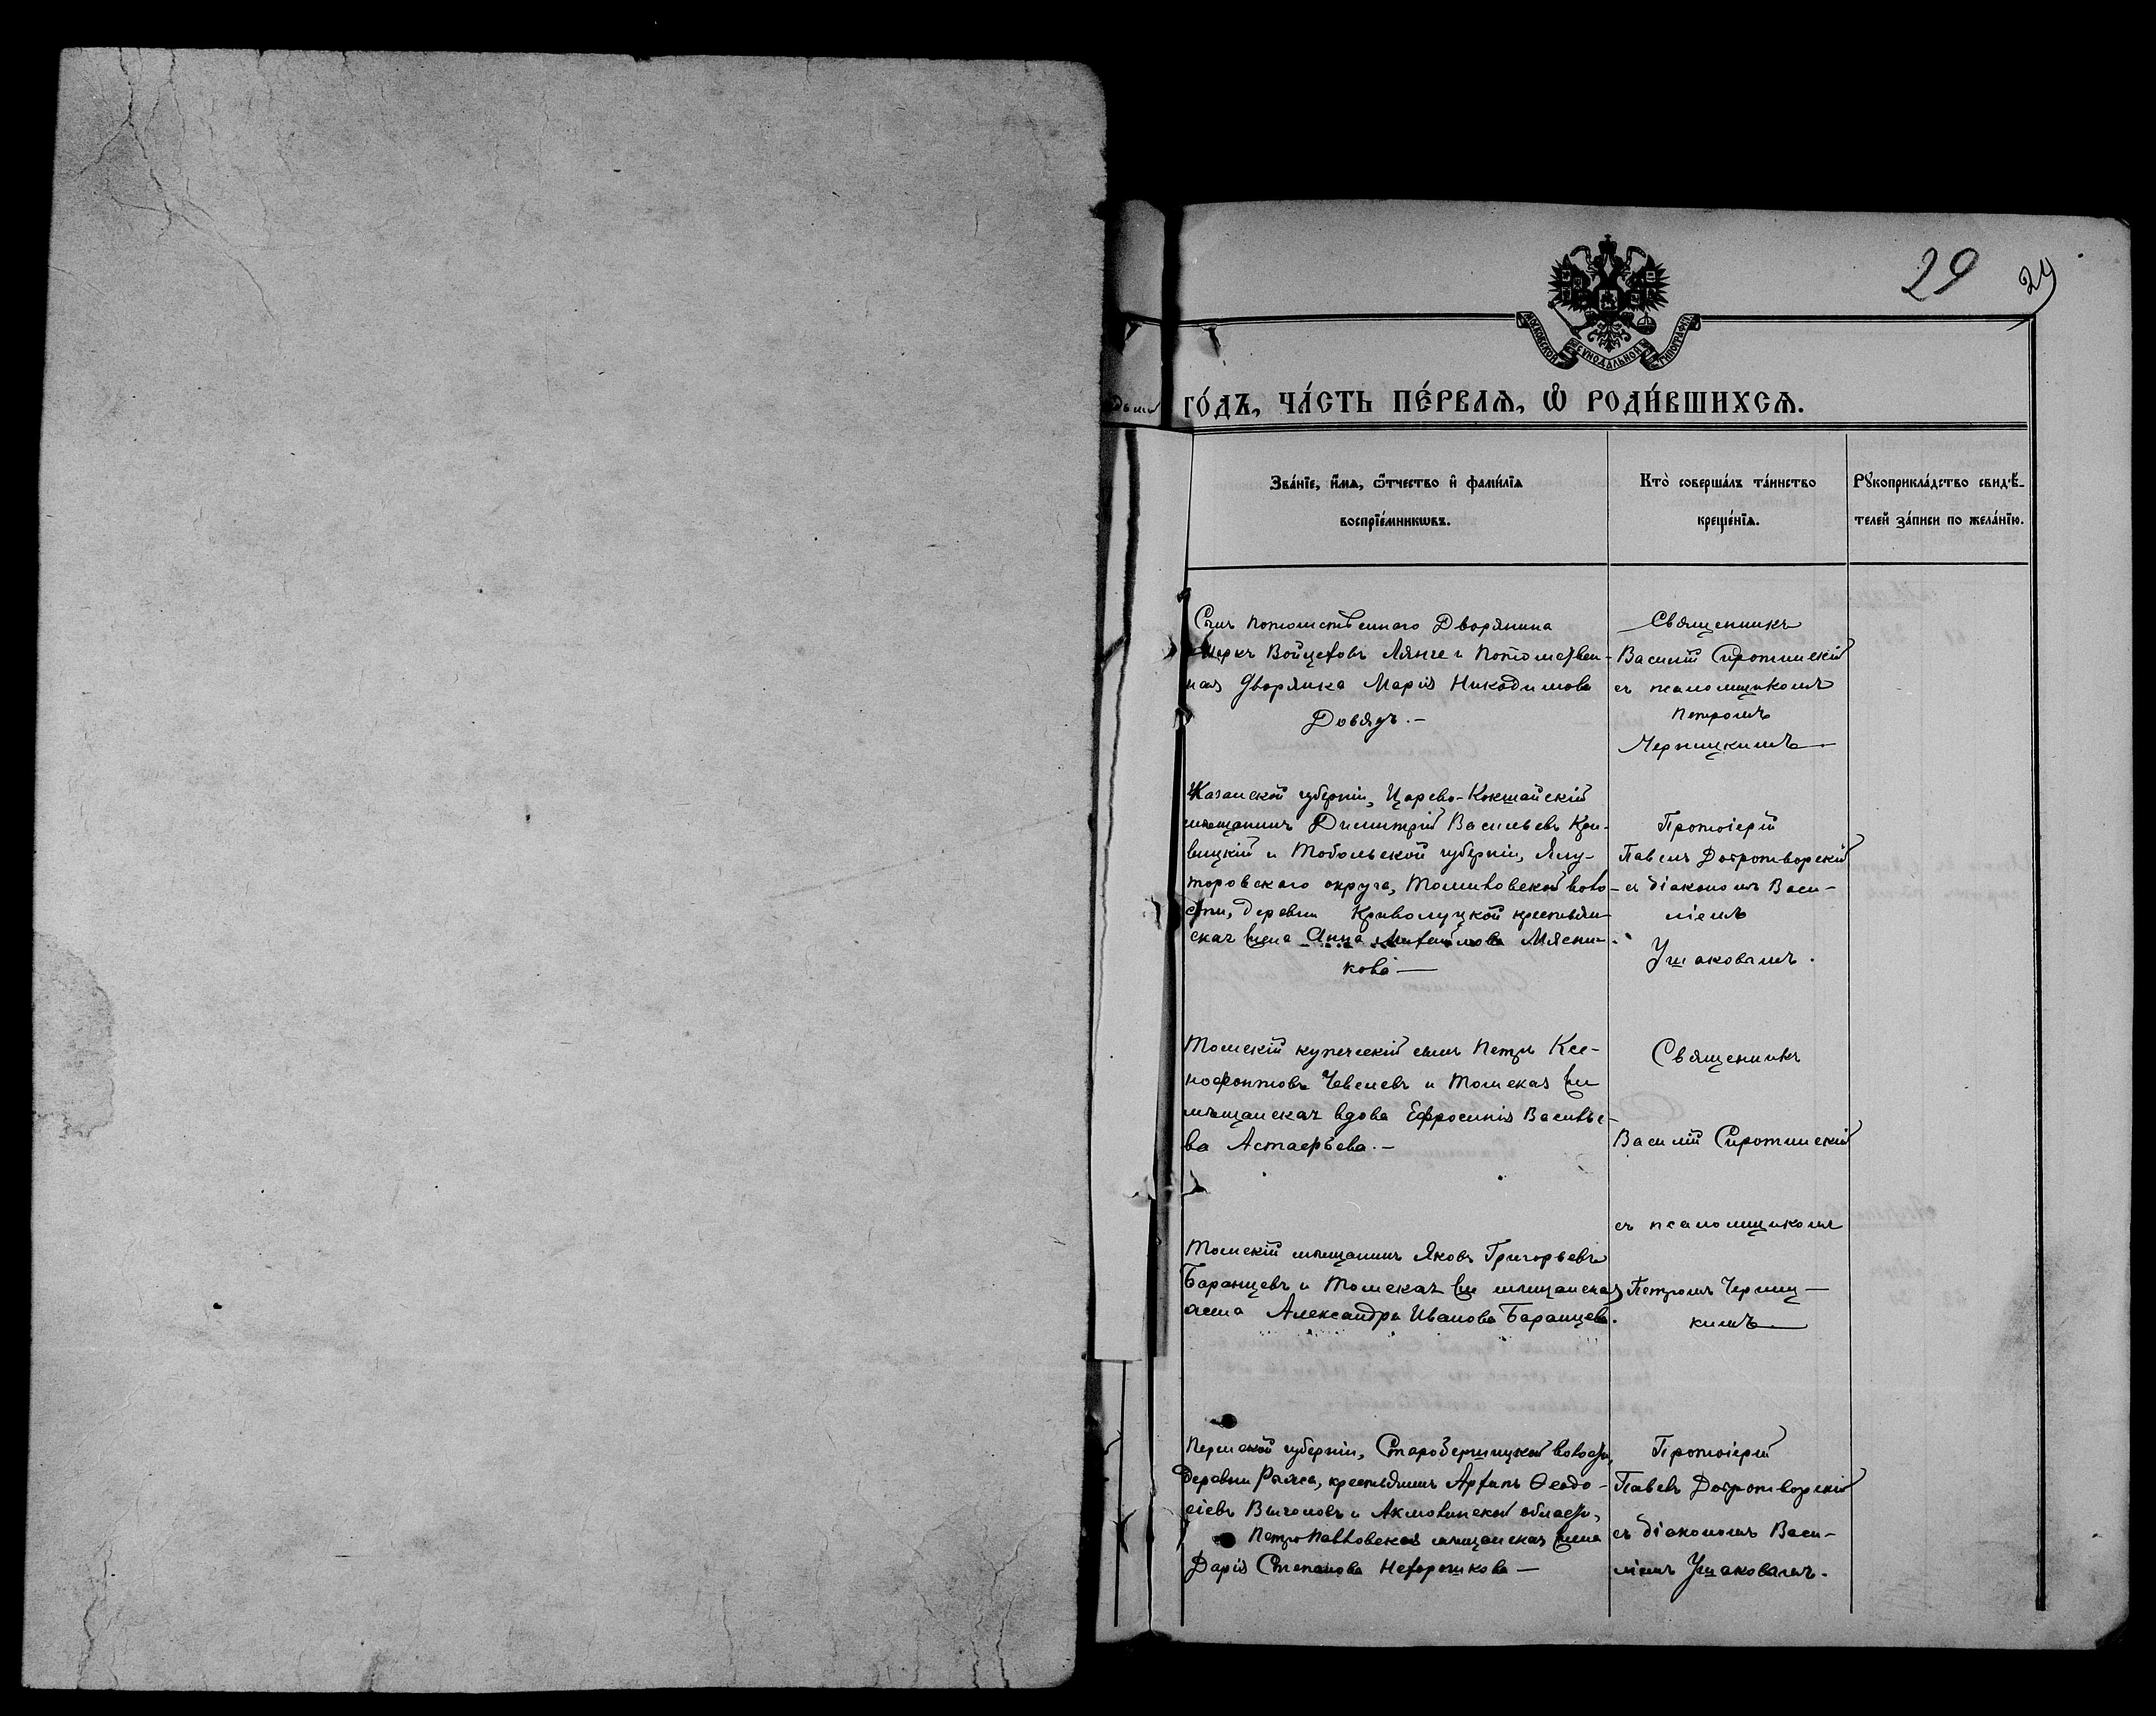 29 29
МОСКОВСКОЙ СѴНОДАЛЬНОЙ ТИПОГРАФІИ
ГО́ДЪ, ЧА́СТЬ ПЕ́РВАѦ, Ѡ҆ РОДИ́ВШИХСѦ.
Зва́нїе, и҆́мѧ, ѻ҆́тчество и҆ фами́лїѧ
воспрїе́мникѡвъ.
Кто̀ соверша́лъ та́инство
креще́нїѧ.
Рꙋкоприкла́дство свидѣ́-
телей за́писи по жела́нїю.
Сынъ потомственнаго Дворянина
Войцеховъ Лянге и потомствен-
ная дворянка Марія Никодимова
Довядъ.-
Священникъ
Василій Сиротинскій
съ псаломщикомъ
Петромъ
Черницкимъ
Казанской губерніи, Царево-Кокшайскій
мѣщанинъ Димитрій Васильевъ Кри-
вицкій и Тобольской губерніи, Ялу-
торовскаго округа, Томиловской воло-
сти, деревни Криволуцкой крестьян-
ская жена Анна Михайлова Мясни-
кова—
Протоіерей
Павелъ Добротворскій
съ діакономъ Васи-
ліемъ
Ушаковымъ.
Томскій купеческій сынъ Петръ Ксе-
нофонтовъ Чевелевъ и Томская
мѣщанская вдова Ефросинія Василье-
ва Астафьева.-
Священникъ
Василій Сиротинскій
съ псаломщикомъ
Петромъ Черниц-
кимъ
Томскій мѣщанинъ Яковъ Григорьевъ
Баранцевъ и Томская мѣщанская
жена Александра Иванова Баранцева.
Пермской губерніи, волости,
деревни крестьянинъ Архипъ Ѳеодо-
сіевъ и Акмолинской области,
Петропавловская мѣщанская жена
Дарія Степанова Нехорошкова—
Протоіерей
Павелъ Добротворскій
съ діакономъ Васи-
ліемъ Ушаковымъ.